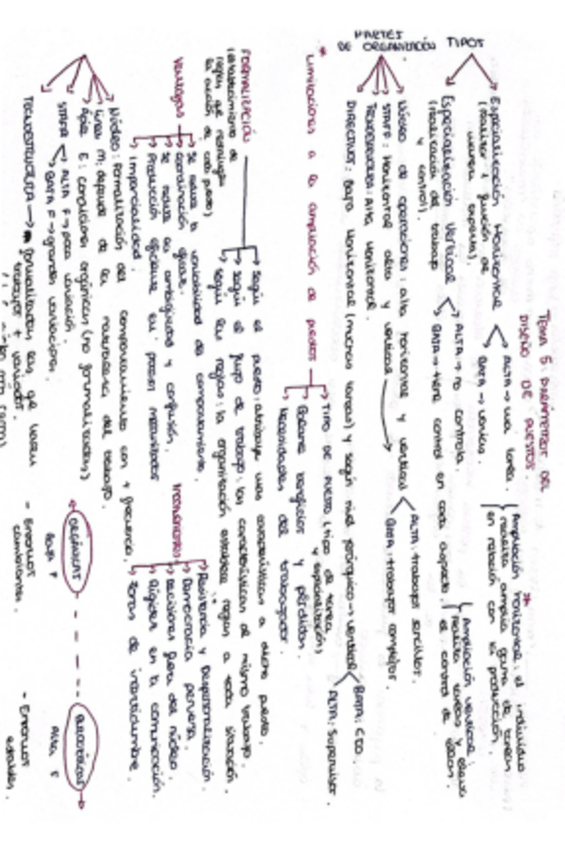 TEMA 5: PARÁMETROS DEL
DISEÑO DE PUESTOS.
TIPOS
Especialización Horizontal
(realizar 1 función de
manera experta).
ALTA → una tarea.
BAJA → varias.
* Ampliación horizontal: el individuo
realiza amplia gama de tareas
en relación con la producción.
Especialización Vertical
(realización de trabajo
y control).
ALTA → no controla.
BAJA → tiene control en cada aspecto.
Ampliación vertical:
realiza tareas y
el control de
PARTES
DE ORGANIZACIÓN
Núcleo de operaciones: alta horizontal y vertical
ALTA: trabajos sencillos.
BAJA: trabajos complejos.
STAFF: Horizontal alta y vertical
TECNOESTRUCTURA: Alta horizontal.
DIRECTIVOS: Baja horizontal (muchas tareas) y según nivel jerárquico → vertical
BAJA: CEO
ALTA: Supervisor.
* Limitaciones a la ampliación de puestos
TIPO DE PUESTO (tipo de tarea
y especialización)
Balance beneficios y pérdidas.
Necesidades del trabajador.
FORMALIZACIÓN
(establecimiento de
reglas que restringen
la acción de cada puesto)
Según el puesto: atribuye unas características a dicho puesto.
Según el flujo de trabajo: las características al mismo trabajo
Según las reglas: la organización establece reglas a toda situación.
Ventajas
Se reduce la variabilidad de comportamiento.
Coordinación eficaz.
Se reduce la ambigüedad y confusión.
Producción eficiente
Imparcialidad.
Inconvenientes
Resistencia y Despersonalización.
Democracia perversa.
Decisiones fuera del núcleo.
Rigidez en la comunicación.
Zonas de incertidumbre.
Núcleo: Formalización del comportamiento con + frecuencia.
Línea M: depende de la naturaleza del trabajo.
Ápice E: condiciones orgánicas (no formalizadas)
STAFF
ALTA F → poca variación.
BAJA F → grandes variaciones.
TECNOESTRUCTURA → formalizados los que hacen
trabajos + variados.
ORGÁNICAS
Baja F
- Entornos
cambiantes.
BUROCRÁTICAS
Alta F
- Entornos
estables.